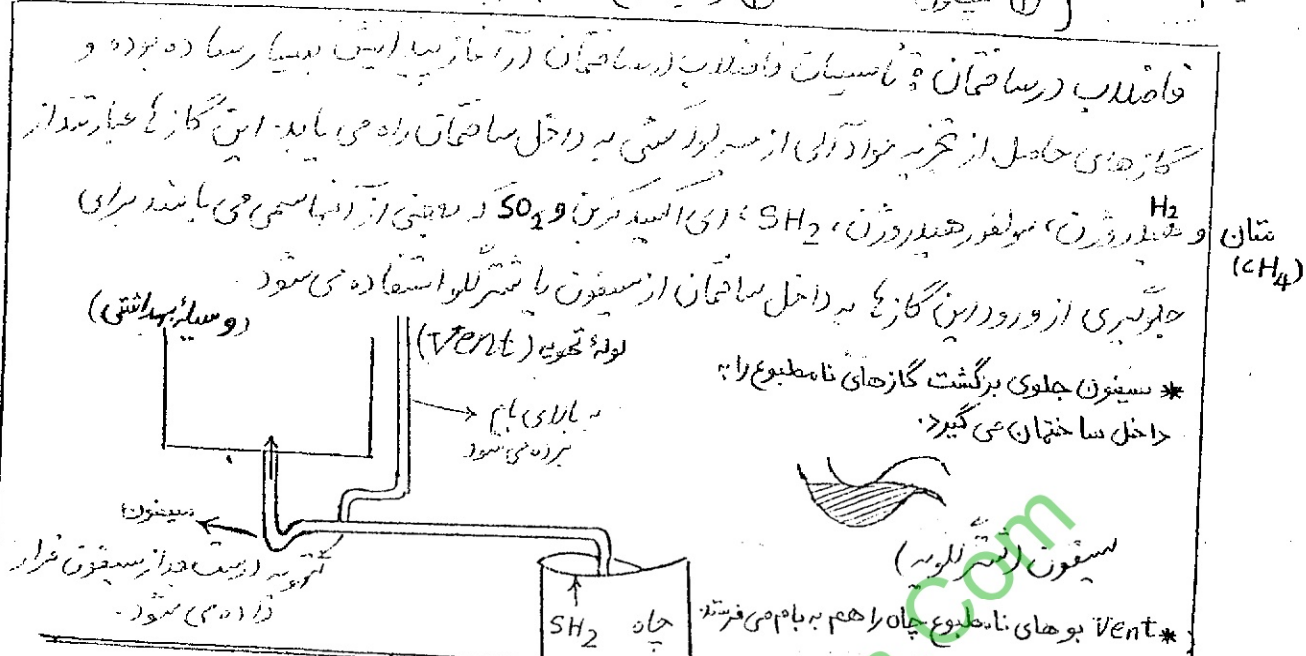 فاضلاب در ساختمان : تأسیسات فاضلاب در ساختمان در آغاز پیدایش بسیار ساده بوده و
گازهای حاصل از تجزیه مواد آلی از مسیر لوله کشی به داخل ساختمان راه می یابد. این گازها عبارتند از
متان (CH4) و هیدروژن H2، سولفور هیدروژن، SH2، دی اکسید کربن و SO2 که بعضی از آنها سمی می باشند برای
جلوگیری از ورود این گازها به داخل ساختمان از سیفون یا شترگلو استفاده می شود
(وسیله بهداشتی)
لوله تهویه (Vent)
به بالای بام
برده می شود
* سیفون جلوی برگشت گازهای نامطبوع را به
داخل ساختمان می گیرد.
سیفون
تهویه درست بعد از سیفون قرار
داده می شود.
سیفون (شترگلویه)
SH2
چاه
* Vent بوهای نامطبوع چاه را هم به بام می فرستد.
com